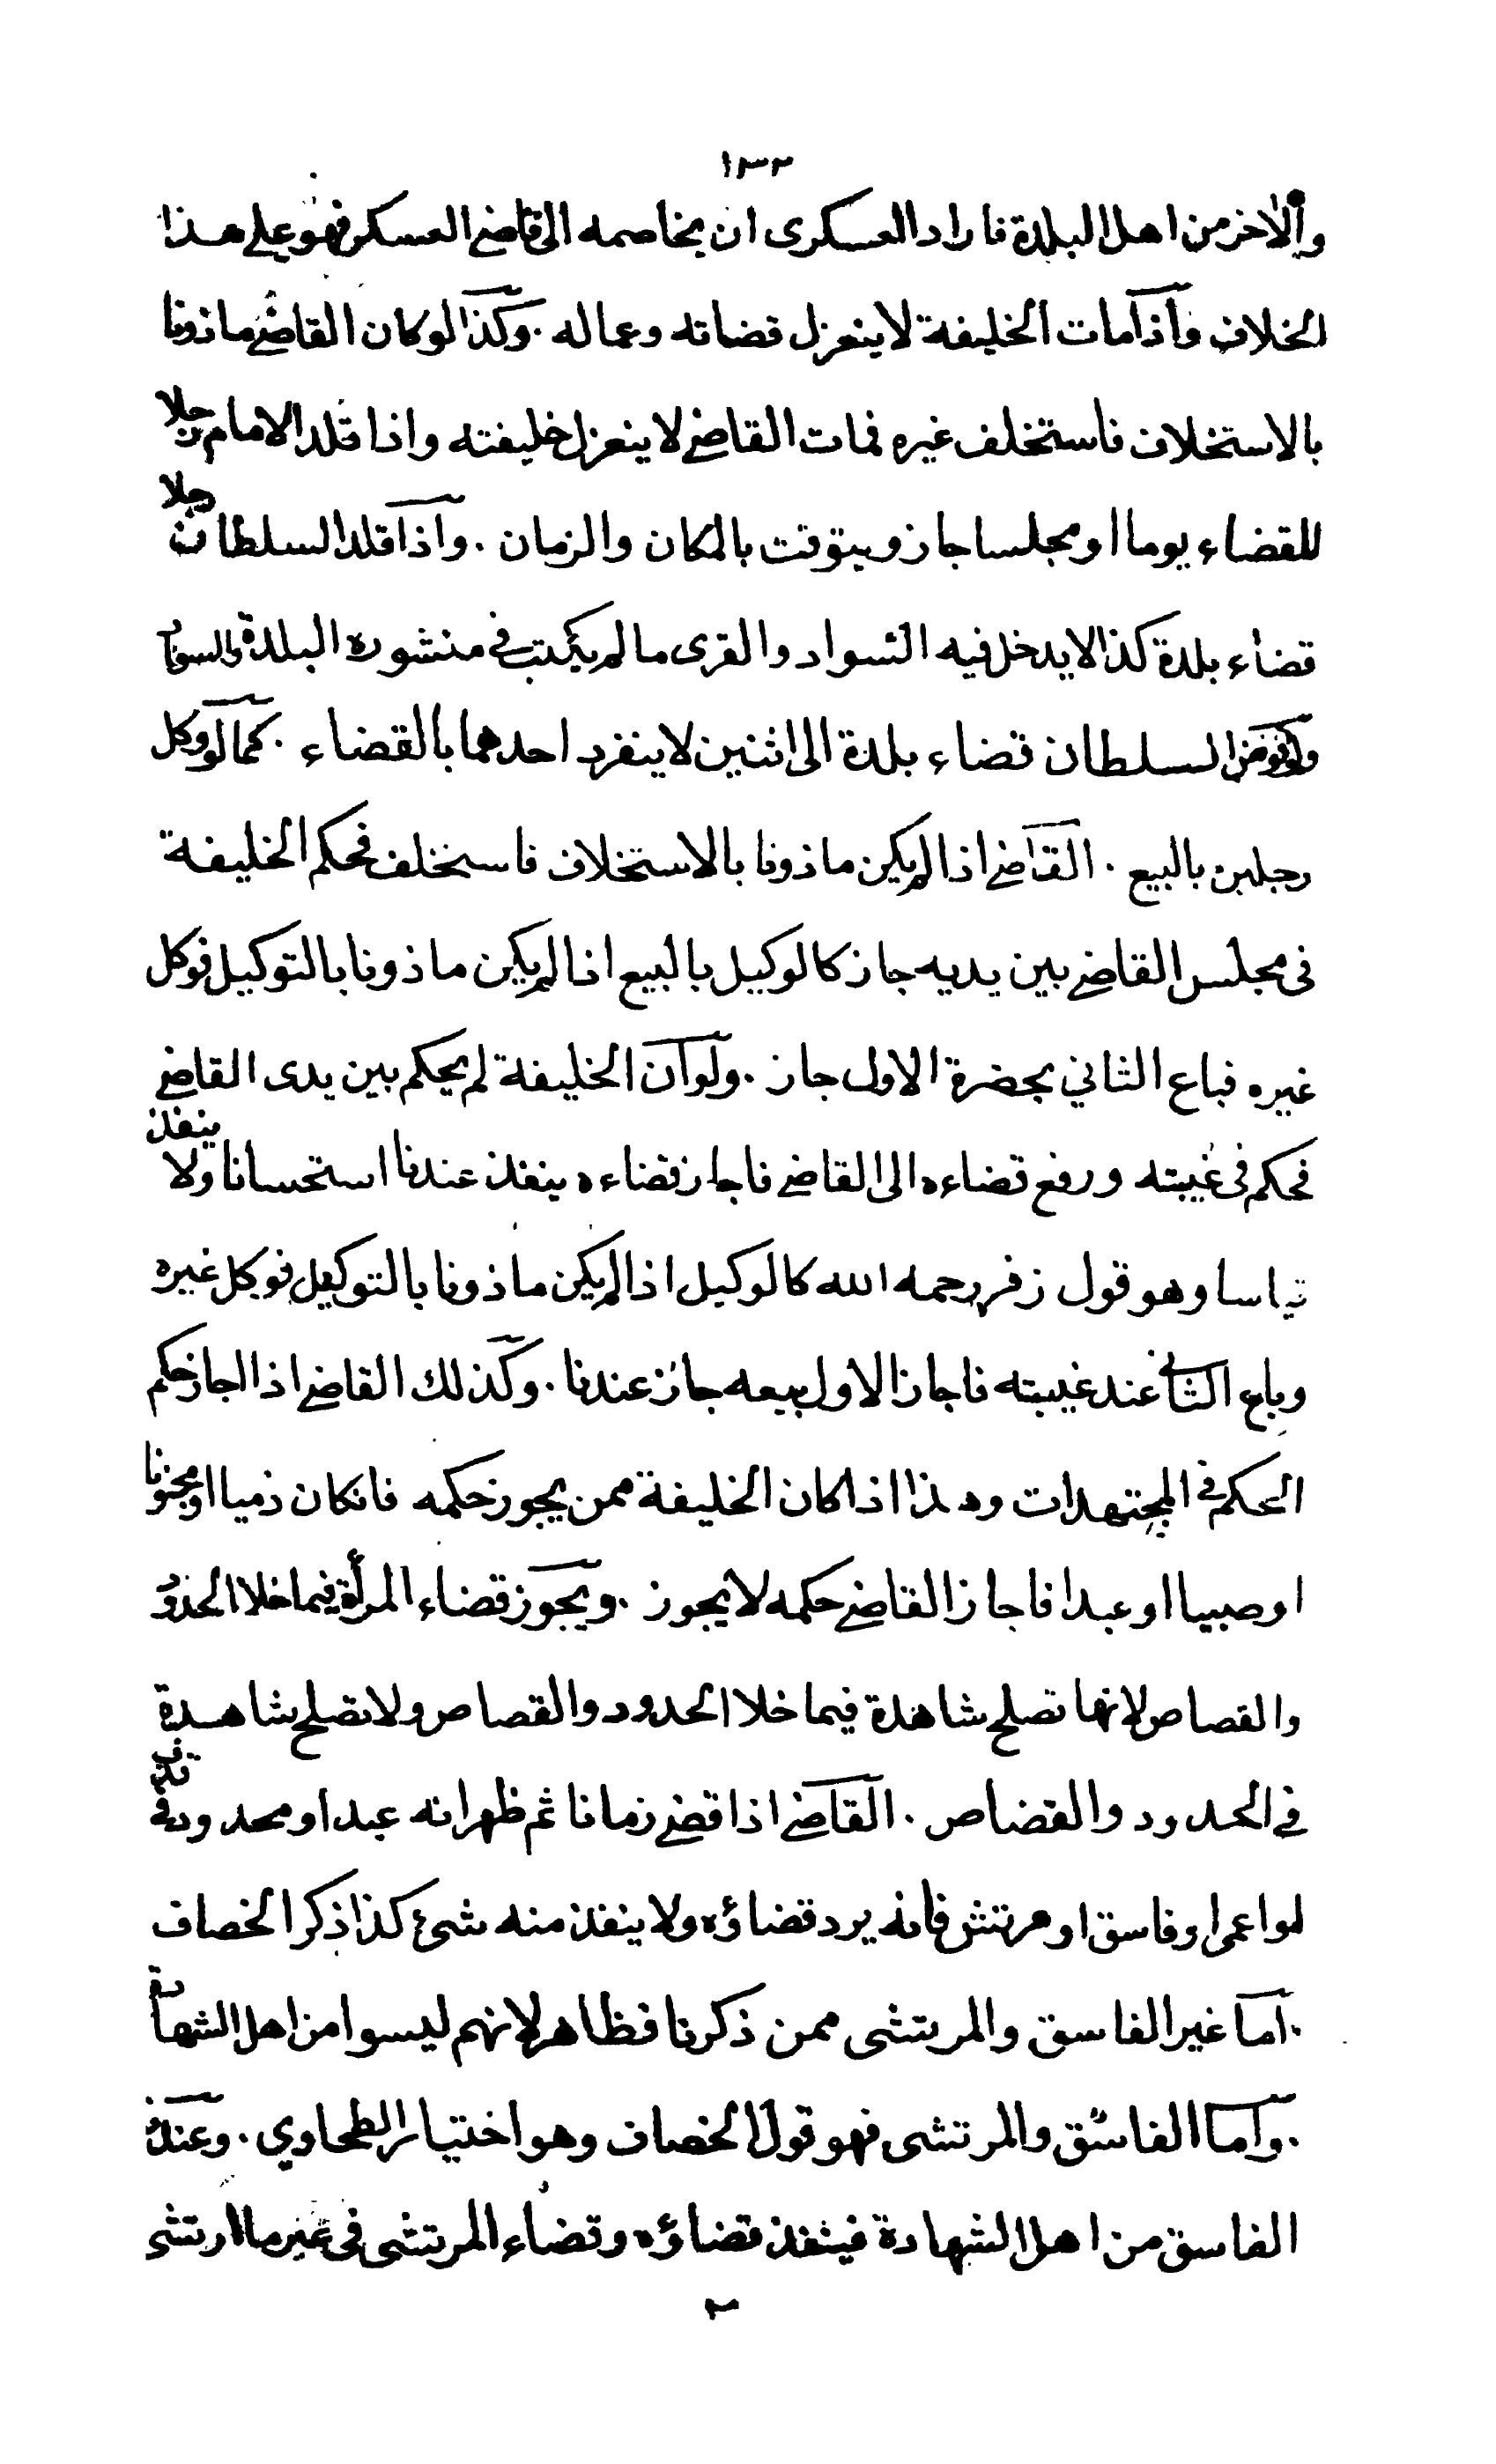 ١٣٢
والاخر من اهل البلدة فاراد العسكرى ان يخاصمه الى قاضى العسكر فهو على هذا
الخلاف واذا مات الخليفة لا ينعزل قضاته وعماله . وكذا لو كان القاضى ماذونا
بالاستخلاف فاستخلف غيره فمات القاضى لا ينعزل خليفته واذا قلد الامام رجلا
للقضاء يوما او مجلسا جاز ويتوقت بالمكان والزمان . واذا قلد السلطان رجلا
قضاء بلدة كذا لا يدخل فيه السواد والقرى ما لم يكتب فى منشوره البلدة والسواد
ولو فوض السلطان قضاء بلدة الى اثنين لا ينفرد احدهما بالقضاء . كما لو وكل
رجلين بالبيع . القاضى اذا لم يكن ماذونا بالاستخلاف فاستخلف فحكم الخليفة
فى مجلس القاضى بين يديه جاز كالوكيل بالبيع اذا لم يكن ماذونا بالتوكيل فوكل
غيره فباع الثاني بحضرة الاول جاز . ولو ان الخليفة لم يحكم بين يدى القاضى
فحكم فى غيبته ورفع قضاءه الى القاضى فاجاز قضاءه ينفذ عندنا استحسانا ولا ينفذ
قياسا وهو قول زفر رحمه الله كالوكيل اذا لم يكن ماذونا بالتوكيل فوكل غيره
وباع الثانى عند غيبته فاجاز الاول بيعه جاز عندنا . وكذلك القاضى اذا اجاز حكم
الحكم فى المجتهدات وهذا اذا كان الخليفة ممن يجوز حكمه فانكان ذميا او مجنونا
او صبيا او عبدا فاجاز القاضى حكمه لا يجوز . ويجوز قضاء المرأة فيما خلا الحدود
والقصاص لانها تصلح شاهدة فيما خلا الحدود والقصاص ولا تصلح شاهدة
فى الحدود والقصاص . القاضى اذا قضى زمانا ثم ظهر انه عبد او محدود فى قذف
او اعمى او فاسق او مرتش فانه يرد قضاؤه ولا ينفذ منه شئ كذا ذكر الخصاف
. اما غير الفاسق والمرتشى ممن ذكرنا فظاهر لانهم ليسوا من اهل الشهادة
. واما الفاسق والمرتشى فهو قول الخصاف وهو اختيار الطحاوي . وعندنا
الفاسق من اهل الشهادة فينفذ قضاؤه وقضاء المرتشى فى غير ما ارتشى
٢